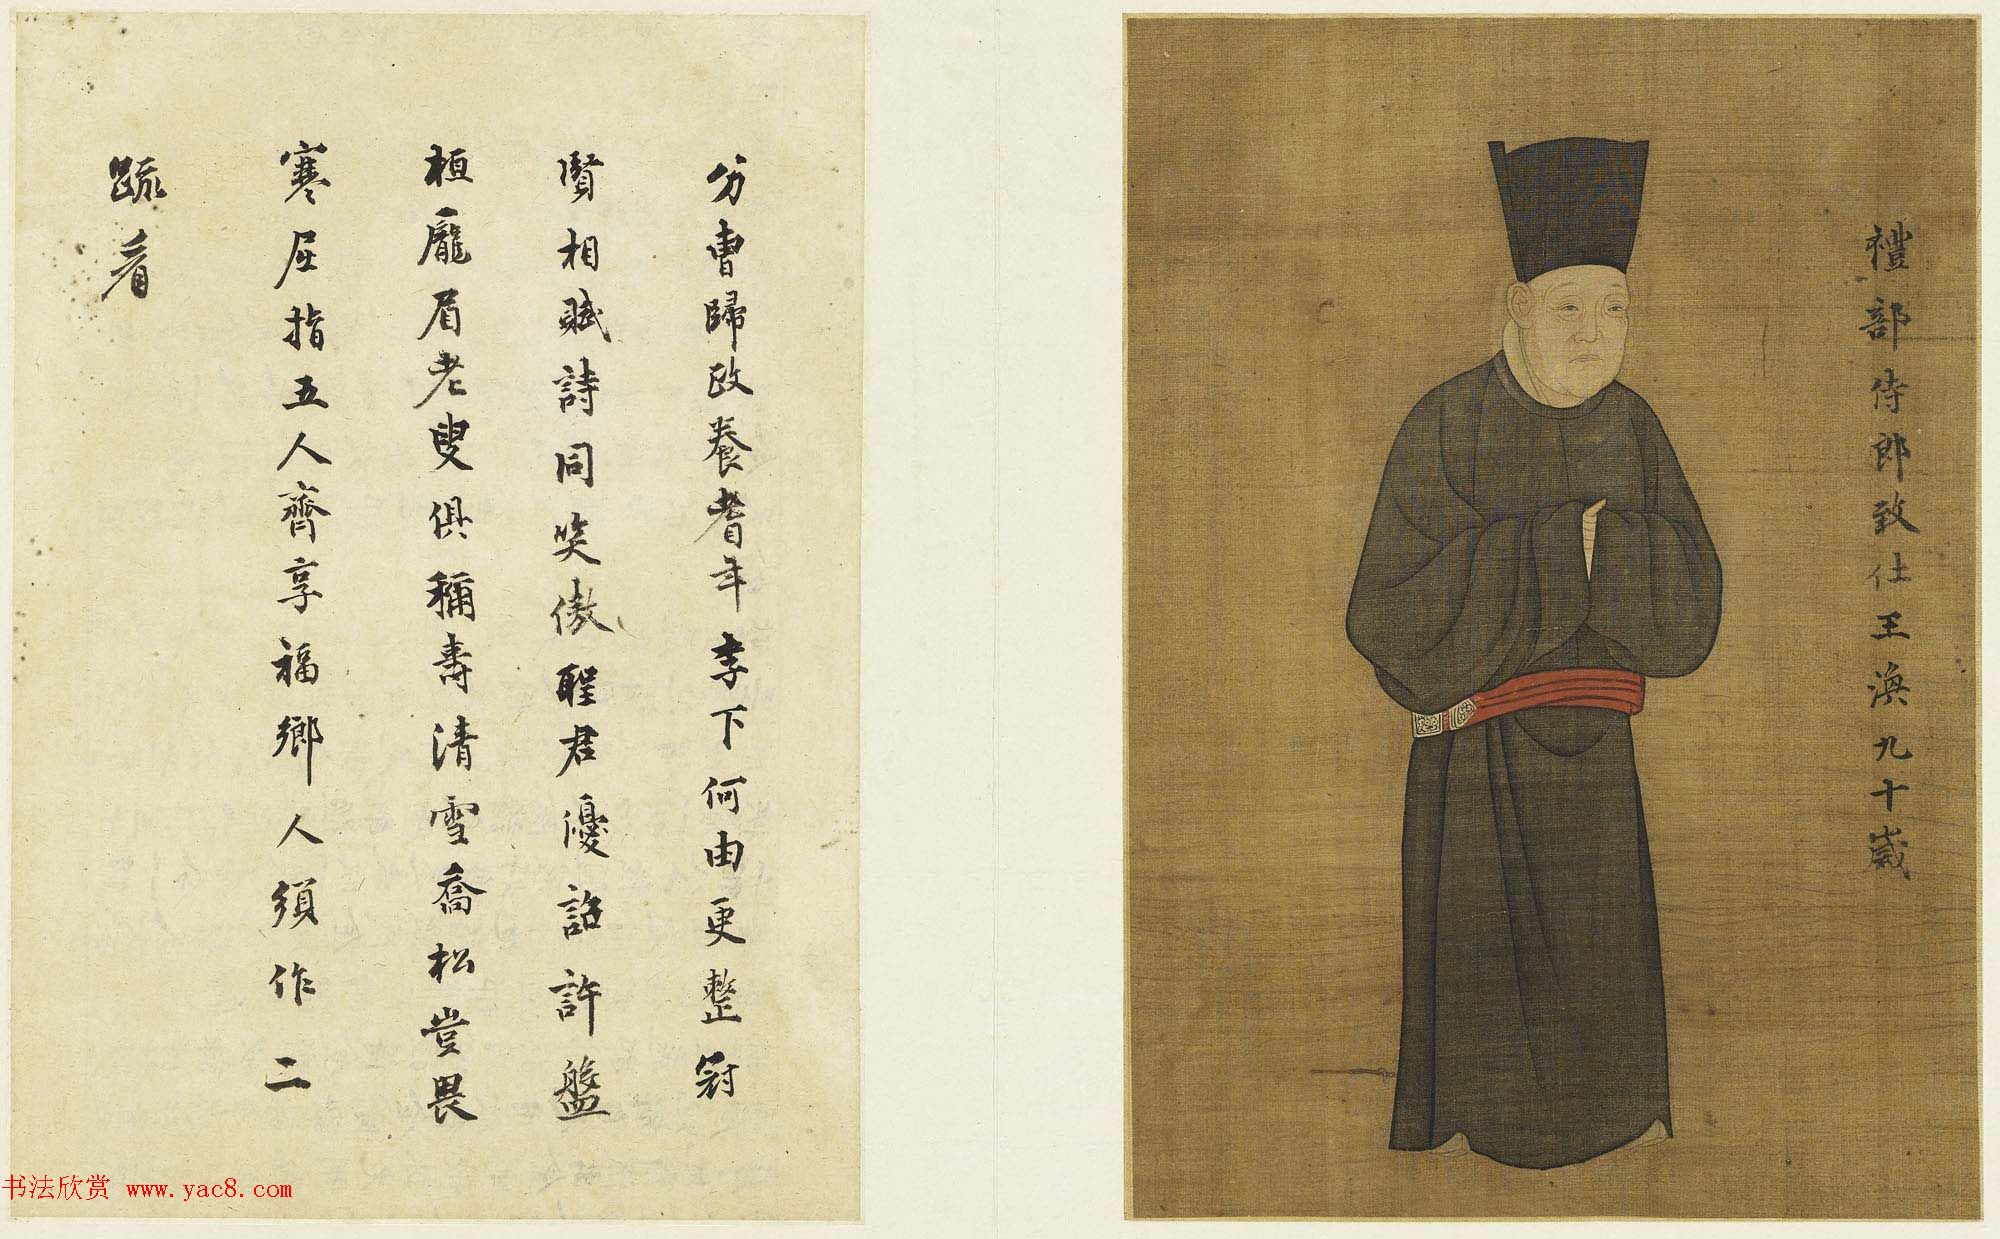 禮部侍郎致仕王渙九十歲
分曹歸政養耆年李下何由更整冠
賢相賦詩同笑傲聖君優詔許盤
桓龐眉老叟俱稱壽清雪喬松豈畏
寒屈指五人齊享福鄉人須作二
疏看
书法欣赏 www.yac8.com